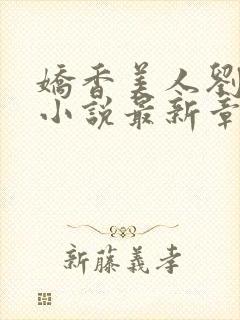 嬌香美人劉
小說最新章
新藤義孝